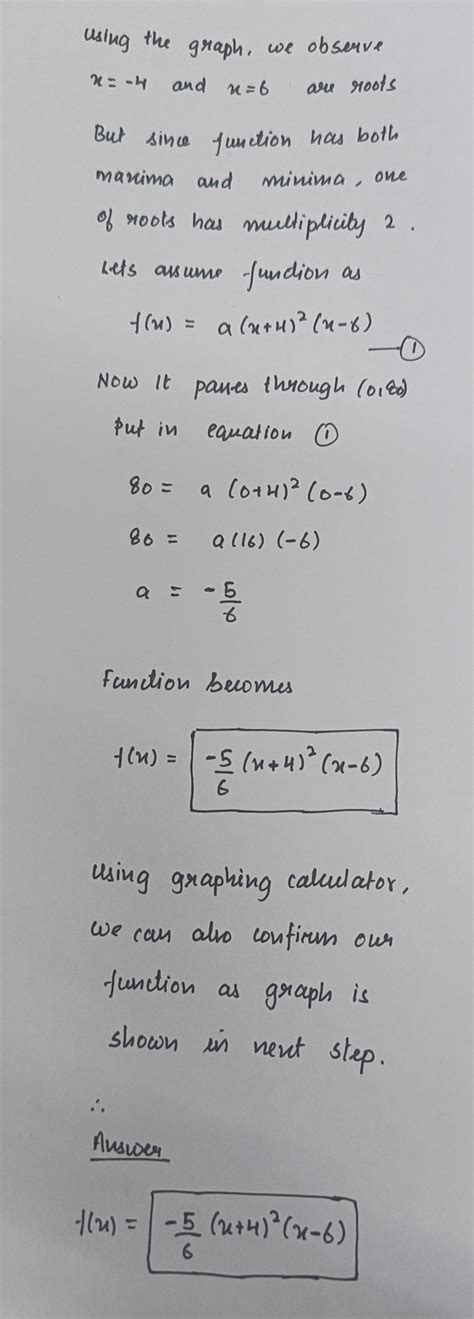 using the graph, we observe
x = -4 and x = 6 are roots
But since function has both
maxima and minima, one
of roots has multiplicity 2.
Lets assume function as
f(x) = a(x+4)²(x-6) —①
Now it passes through (0,80)
Put in equation ①
80 = a (0+4)² (0-6)
80 = a(16) (-6)
a = -5/6
Function becomes
f(x) = -5/6 (x+4)² (x-6)
Using graphing calculator,
we can also confirm our
function as graph is
shown in next step.
∴
Answer
f(x) = -5/6 (x+4)² (x-6)